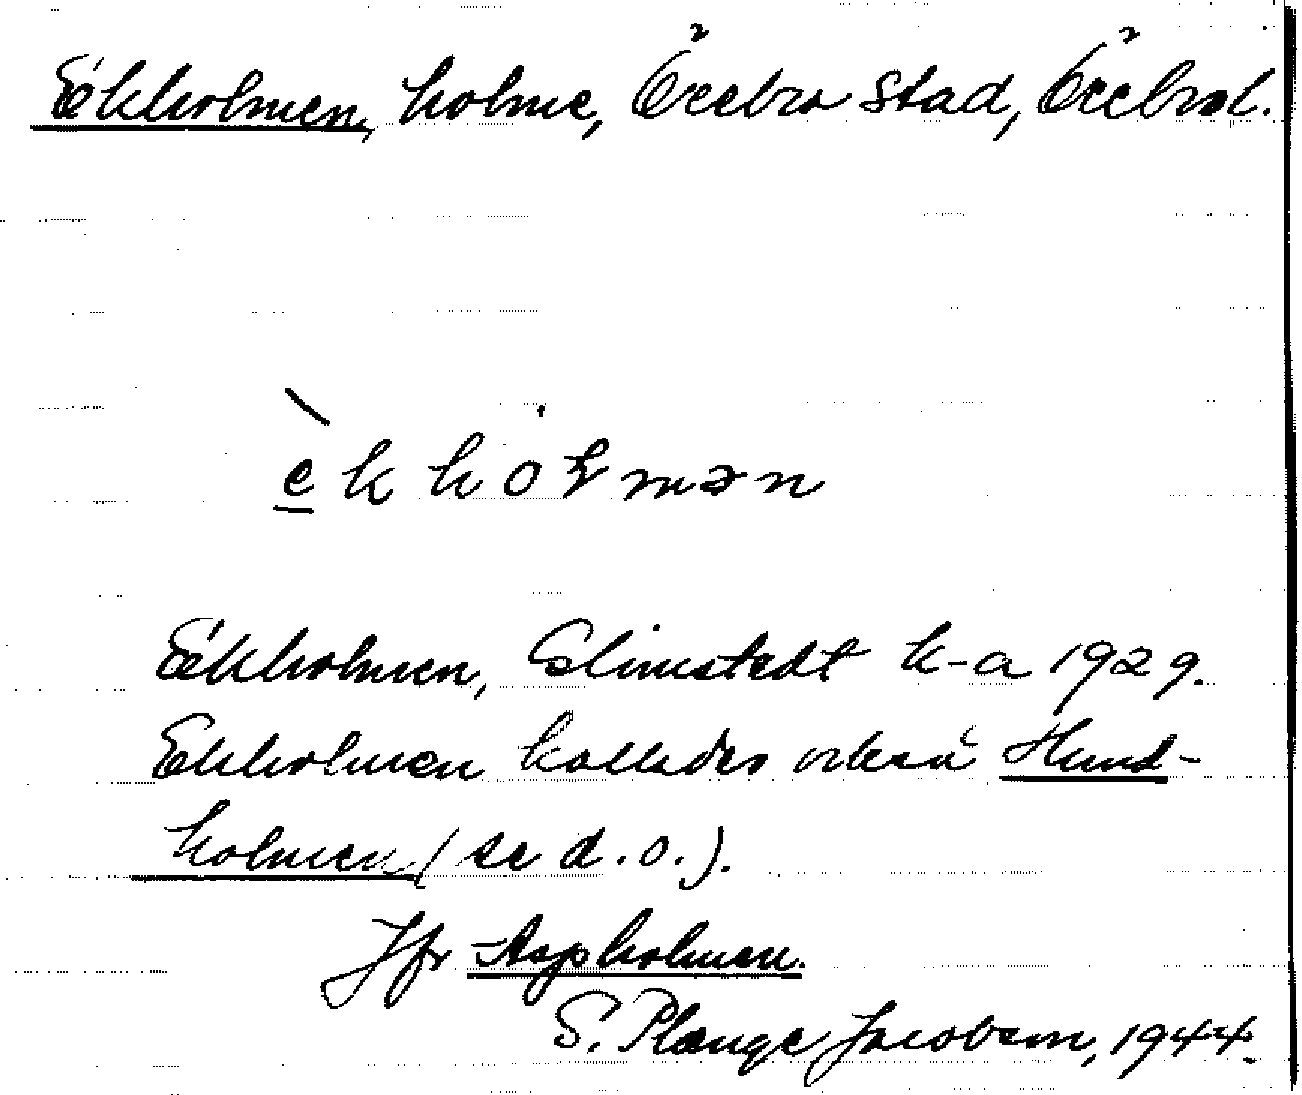 Ekholmen, holme, Örebro stad, Örebro l.
e k h o ɫ m ə n
Ekholmen, Elimstedt k-a 1929.
Ekholmen kallades också Hund-
holmen (se d.o.).
Jfr Aspholmen.
S. Plænge Jacobson, 1944.